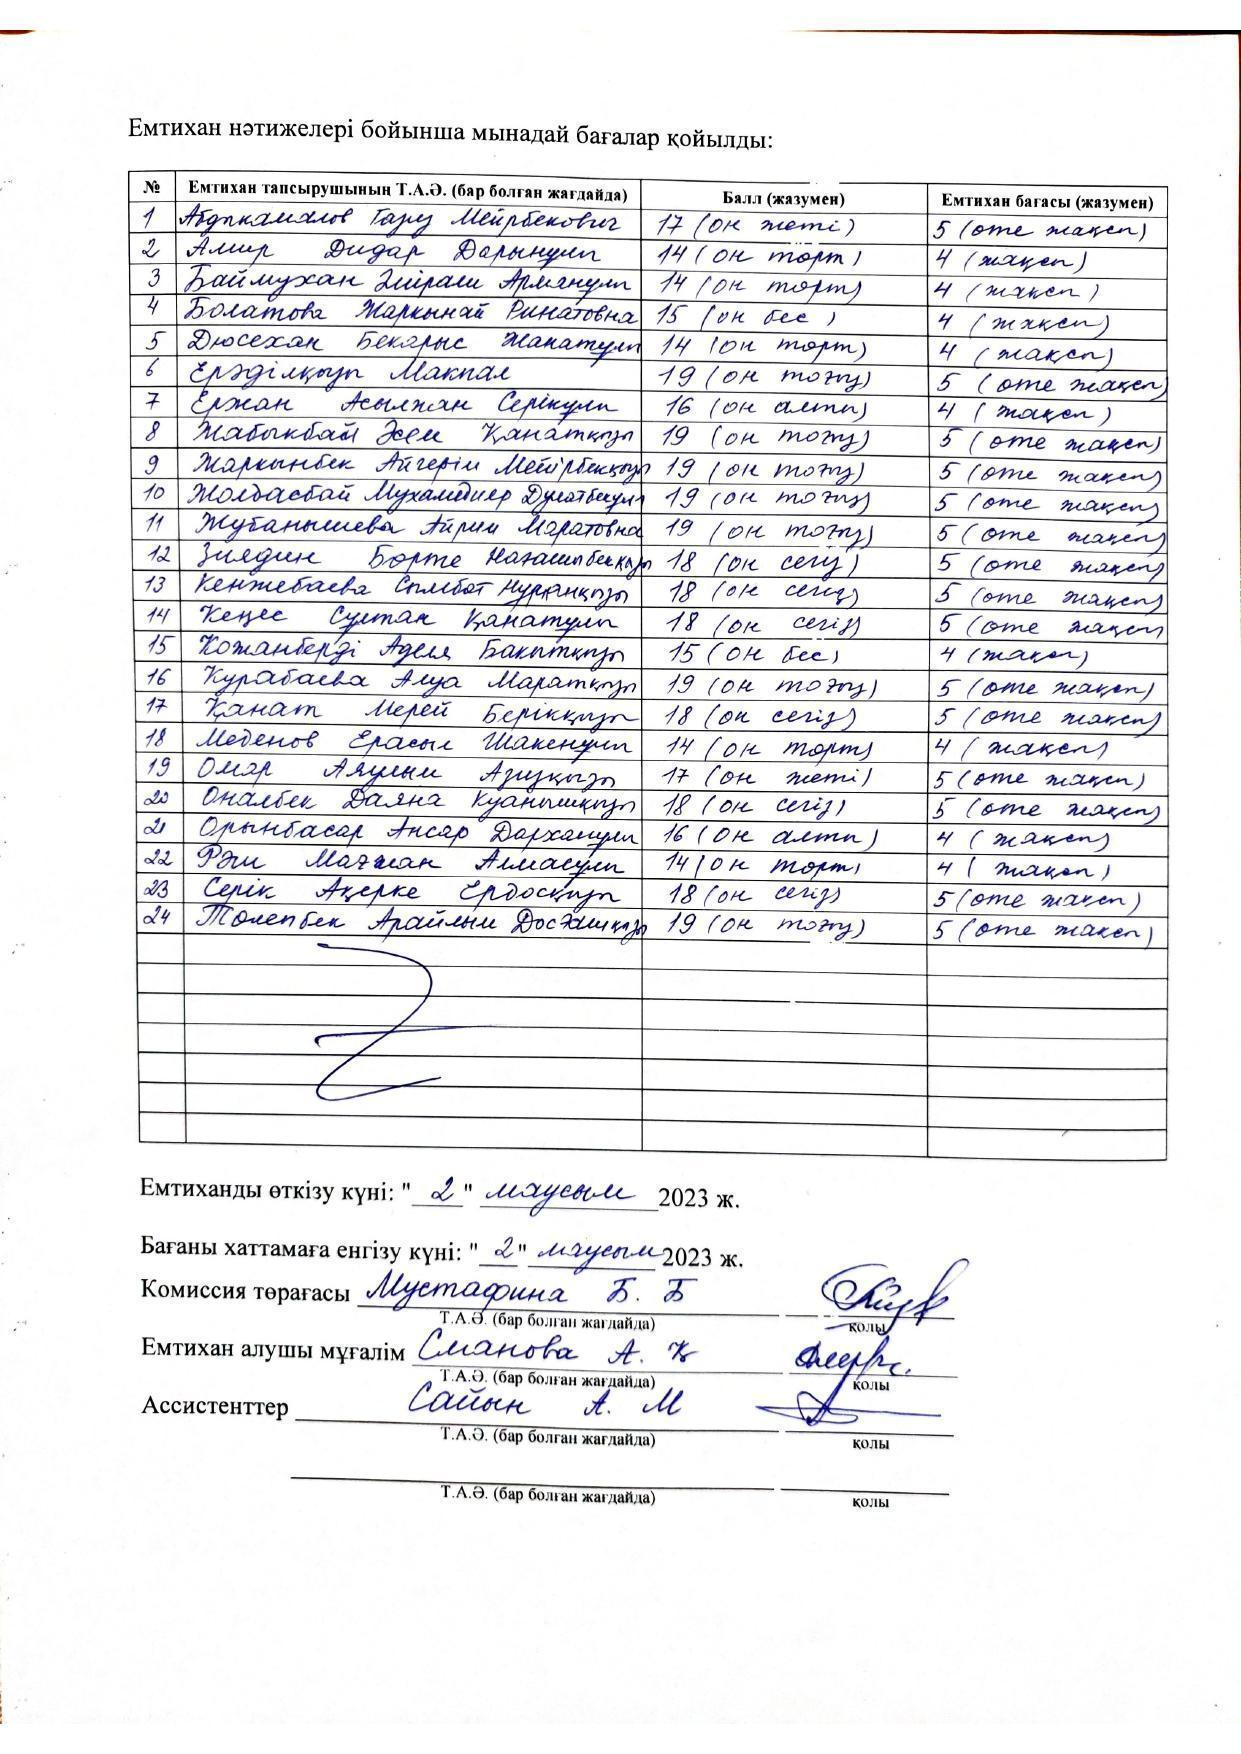 Емтихан нәтижелері бойынша мынадай бағалар қойылды:
№ Емтихан тапсырушының Т.А.Ә. (бар болған жағдайда) Балл (жазумен) Емтихан бағасы (жазумен)
1 Абдикамалов Газиз Мейрбекович 17 (он жеті) 5 (өте жақсы)
2 Амир Дидар Дарынұлы 14 (он төрт) 4 (жақсы)
3 Баймухан Арманұлы 14 (он төрт) 4 (жақсы)
4 Болатова Жаркынай Ринатовна 15 (он бес) 4 (жақсы)
5 Дюсехан Бекарыс Жанатұлы 14 (он төрт) 4 (жақсы)
6 Ерәділқызы Макпал 19 (он тоғыз) 5 (өте жақсы)
7 Ержан Асылжан Серікұлы 16 (он алты) 4 (жақсы)
8 Жабыкбай Әсем Қанатқызы 19 (он тоғыз) 5 (өте жақсы)
9 Жаркынбек Айгерім Мейірбекқызы 19 (он тоғыз) 5 (өте жақсы)
10 Жолдасбай Мухамедияр 19 (он тоғыз) 5 (өте жақсы)
11 Жубанышева Айрин Маратовна 19 (он тоғыз) 5 (өте жақсы)
12 Зиядин Бөрте 18 (он сегіз) 5 (өте жақсы)
13 Кенжебаева Сымбат Нурканқызы 18 (он сегіз) 5 (өте жақсы)
14 Кеңес Султан Қанатұлы 18 (он сегіз) 5 (өте жақсы)
15 Кожанберді Аделя Бакытқызы 15 (он бес) 4 (жақсы)
16 Курабаева Алуа Маратқызы 19 (он тоғыз) 5 (өте жақсы)
17 Қанат Мерей Берікқызы 18 (он сегіз) 5 (өте жақсы)
18 Меденов Ерасыл Шакенұлы 14 (он төрт) 4 (жақсы)
19 Омар Аяулым Азизқызы 17 (он жеті) 5 (өте жақсы)
20 Оналбек Даяна Куанышқызы 18 (он сегіз) 5 (өте жақсы)
21 Орынбасар Ансар Дарханұлы 16 (он алты) 4 (жақсы)
22 Рәш Мағжан Алмасұлы 14 (он төрт) 4 (жақсы)
23 Серік Ақерке Ердосқызы 18 (он сегіз) 5 (өте жақсы)
24 Төлепбек Арайлым Досжанқызы 19 (он тоғыз) 5 (өте жақсы)
Емтиханды өткізу күні: "2" маусым 2023 ж.
Бағаны хаттамаға енгізу күні: "2" маусым 2023 ж.
Комиссия төрағасы Мустафина Б. Б
Т.А.Ә. (бар болған жағдайда) қолы
Емтихан алушы мұғалім Сманова А. Қ
Т.А.Ә. (бар болған жағдайда) қолы
Ассистенттер Сайын А. М
Т.А.Ә. (бар болған жағдайда) қолы
Т.А.Ә. (бар болған жағдайда) қолы